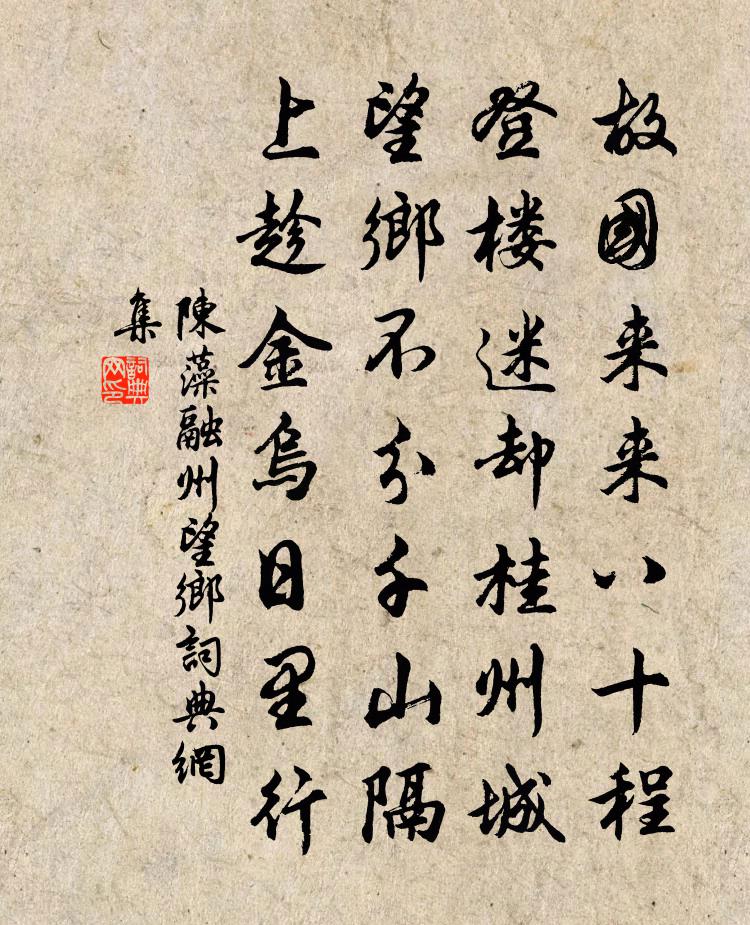 故國来来八十程
登楼迷却桂州城
望鄉不分千山隔
上趁金烏日里行
陳藻融州望鄉詞典網
集
詞典
网印